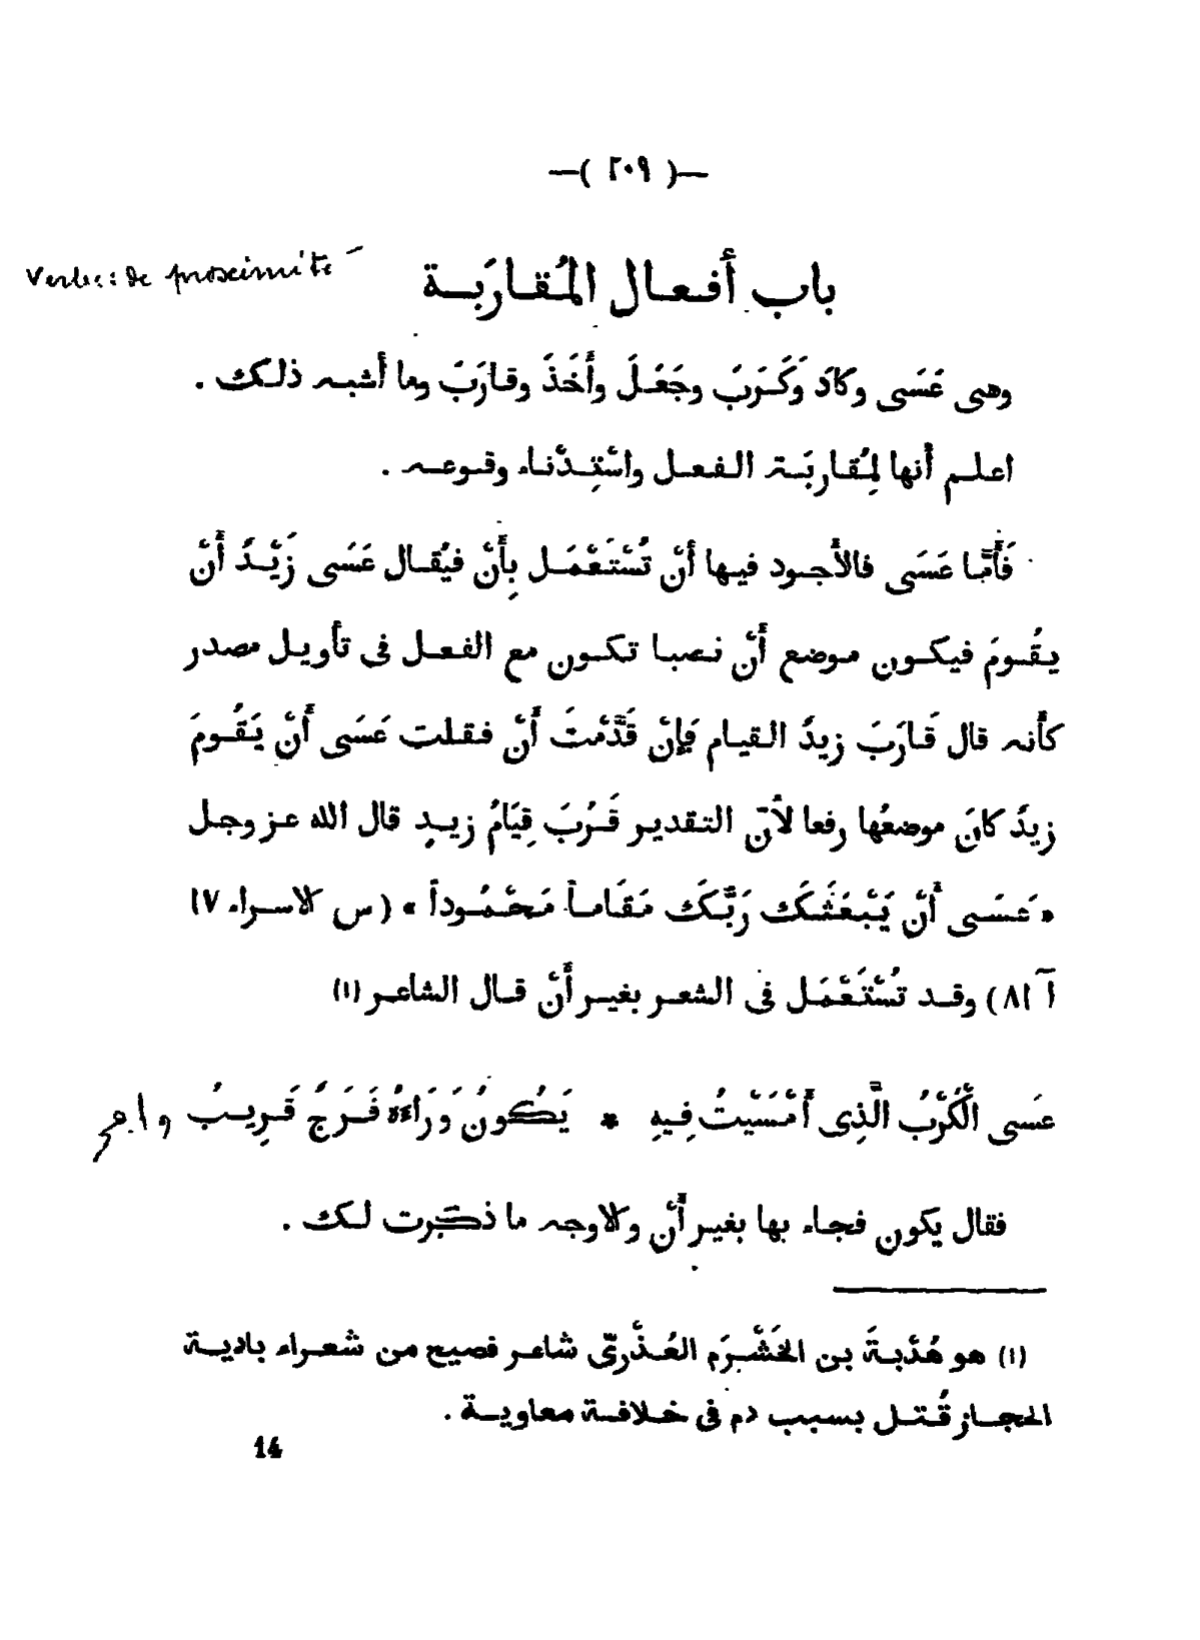 —( ٢٠٩ )—
Verbes: de proximité
باب أفعال المُقارَبة
وهى عَسَى وكادَ وَكَرَبَ وجَعَلَ وأَخَذَ وقارَبَ وما أشبه ذلك .
اعلم أنها لِمُقاربَة الفعل واسْتِدْناء وقوعه .
فَأَمَّا عَسَى فالأجود فيها أنْ تُسْتَعْمَل بِأَنْ فيُقال عَسَى زَيْدٌ أَنْ
يقُومَ فيكون موضع أَنْ نصبا تكون مع الفعل فى تأويل مصدر
كأنه قال قَارَبَ زيدٌ القيام فَإِنْ قَدَّمْتَ أَنْ فقلت عَسَى أَنْ يَقُومَ
زيدٌ كانَ موضعُها رفعا لأنّ التقدير قَرُبَ قِيَامُ زيدٍ قال الله عز وجل
« عَسَى أَنْ يَبْعَثَكَ رَبُّكَ مَقَاماً مَحْمُوداً » ( س الاسراء ١٧
آ ٨١ ) وقد تُسْتَعْمَل فى الشعر بغير أَنْ قال الشاعر (١)
عَسَى الْكَرْبُ الَّذِى أَمْسَيْتُ فِيهِ * يَكُونُ وَرَاءَهُ فَرَجٌ قَرِيبُ وافر
فقال يكون فجاء بها بغير أَنْ والاوجه ما ذكرت لك .
(١) هو هُدْبةَ بن الخَشْرَم العُذْرىّ شاعر فصيح من شعراء بادية
الحجاز قُتل بسبب دم فى خلافة معاوية .
14